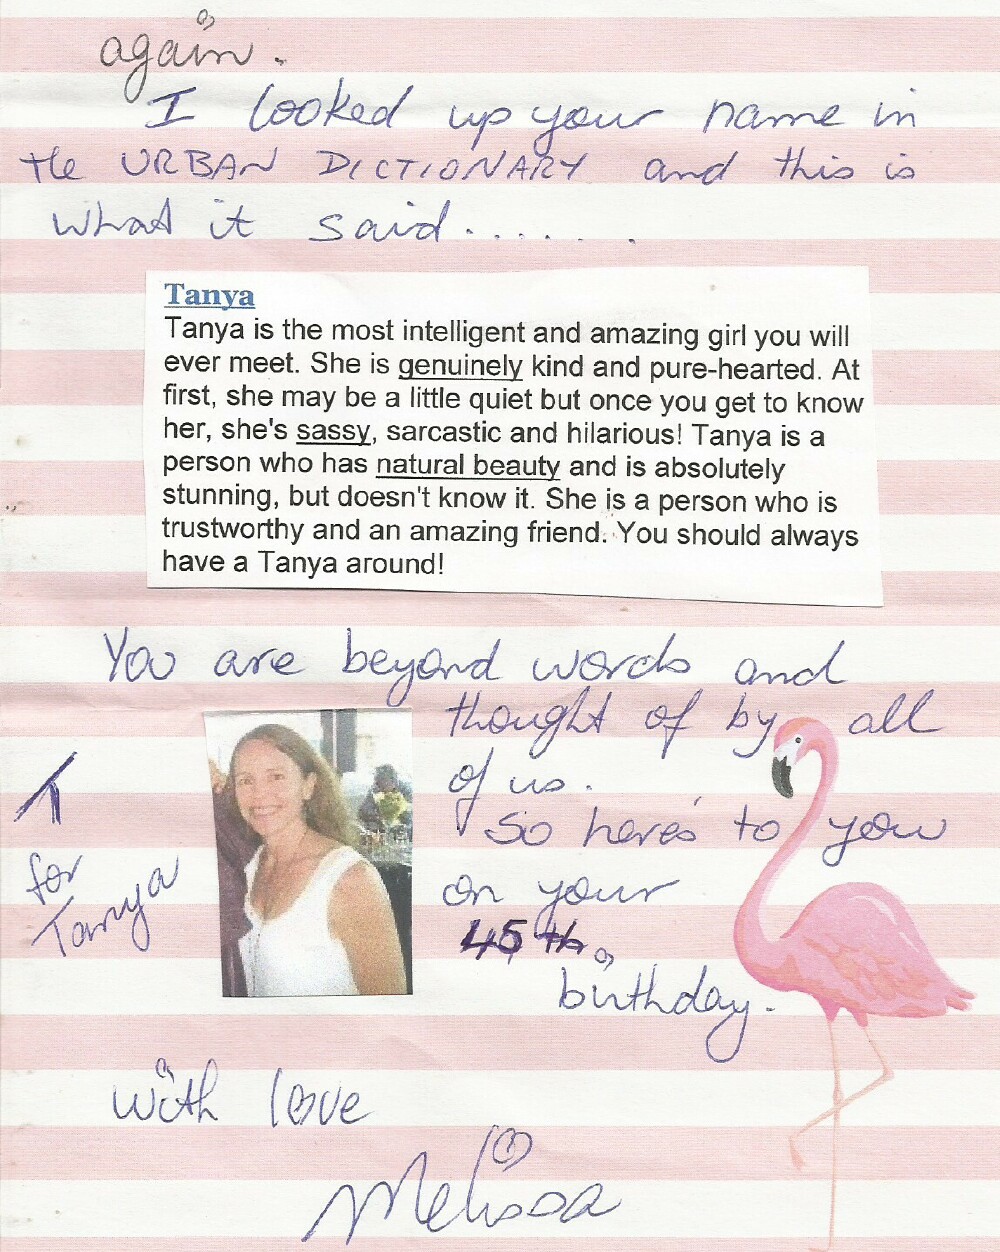 again.
I looked up your name in
the URBAN DICTIONARY and this is
what it said.......
Tanya
Tanya is the most intelligent and amazing girl you will
ever meet. She is genuinely kind and pure-hearted. At
first, she may be a little quiet but once you get to know
her, she's sassy, sarcastic and hilarious! Tanya is a
person who has natural beauty and is absolutely
stunning, but doesn't know it. She is a person who is
trustworthy and an amazing friend. You should always
have a Tanya around!
You are beyond words and
thought of by all
of us.
So here's to you
on your
45th
birthday.
T
for
Tanya
with love
Melissa